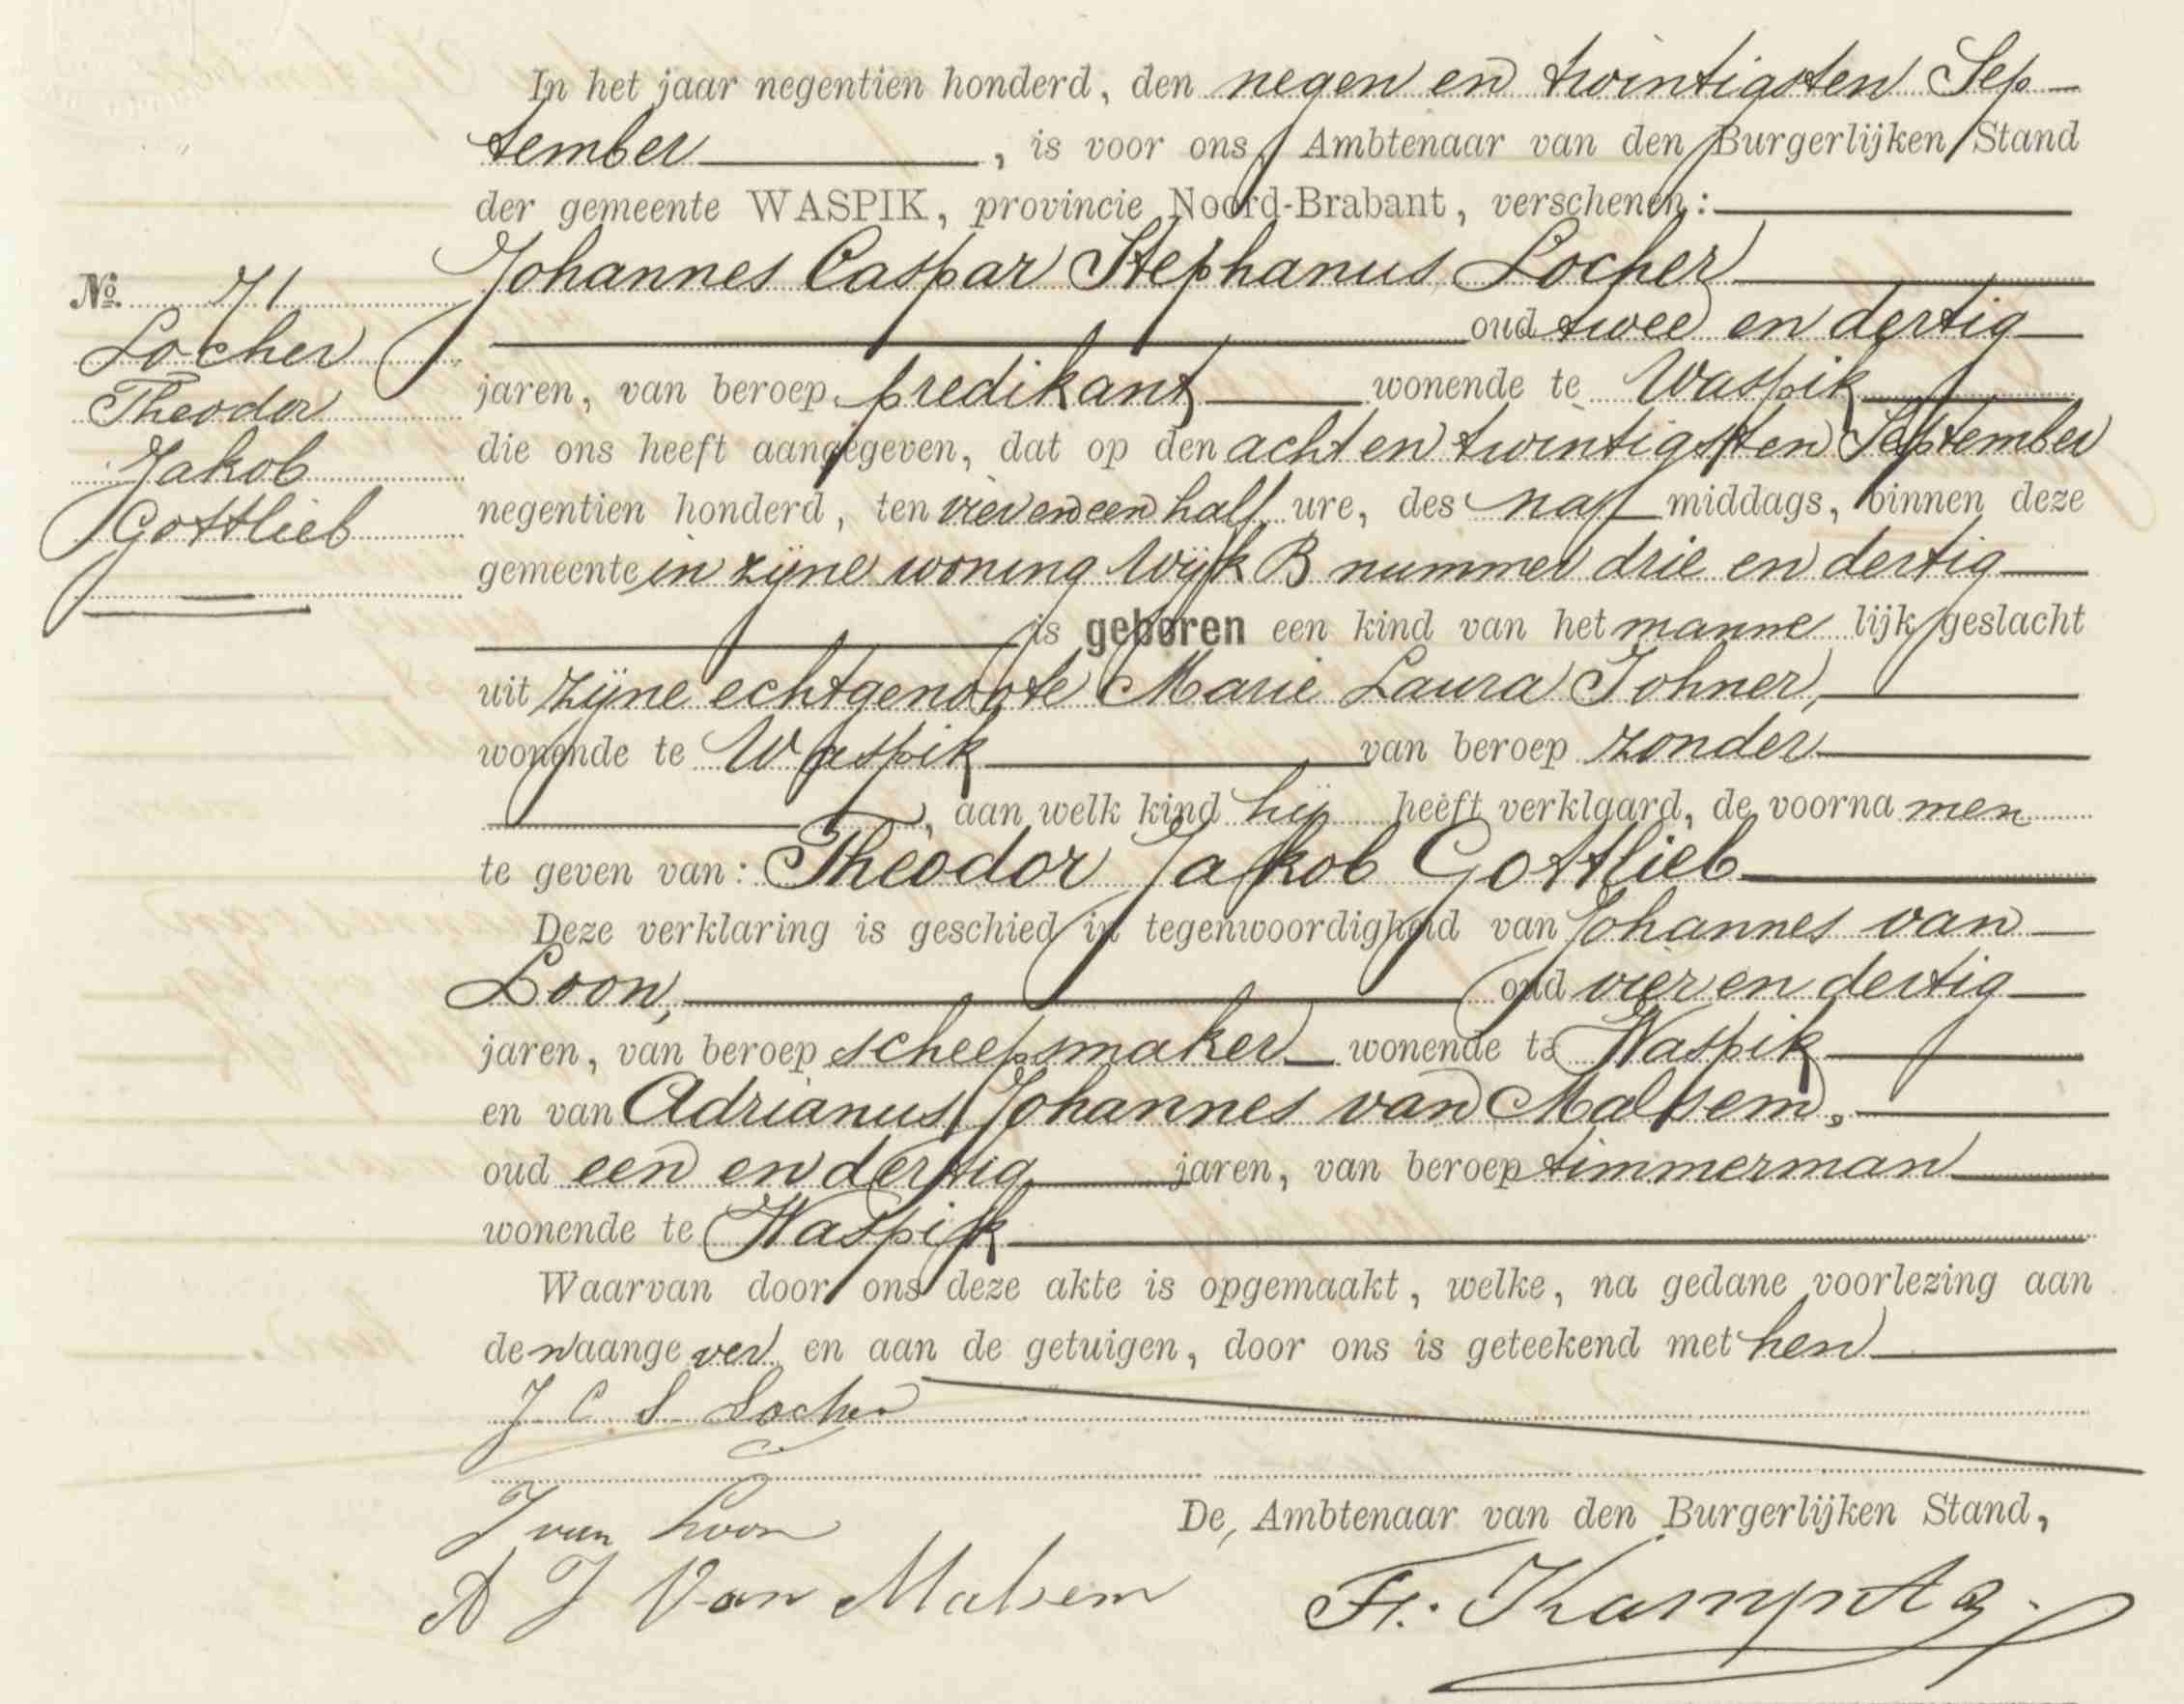 In het jaar negentien honderd, den negen en twintigsten Sep-
tember, is voor ons, Ambtenaar van den Burgerlijken Stand
der gemeente WASPIK, provincie Noord-Brabant, verschenen:
Johannes Caspar Stephanus Locher
oud twee en dertig
jaren, van beroep predikant wonende te Waspik
die ons heeft aangegeven, dat op den acht en twintigsten September
negentien honderd, ten vier en een half ure, des na middags, binnen deze
gemeente in zijne woning Wijk B nummer drie en dertig
is geboren een kind van het manne lijk geslacht
uit zijne echtgenoote Marie Laura Johner,
wonende te Waspik van beroep zonder
, aan welk kind hij heeft verklaard, de voorna men
te geven van: Theodor Jakob Gottlieb
Deze verklaring is geschied in tegenwoordigheid van Johannes van
Loon, oud vier en dertig
jaren, van beroep scheepsmaker wonende te Waspik
en van Adrianus Johannes van Malsem,
oud een en dertig jaren, van beroep timmerman
wonende te Waspik
Waarvan door ons deze akte is opgemaakt, welke, na gedane voorlezing aan
den aange ver en aan de getuigen, door ons is geteekend met hen
J C S Locher
J van Loon
A J Van Malsem
De Ambtenaar van den Burgerlijken Stand,
Fr.
No. 71
Locher
Theodor
Jakob
Gottlieb